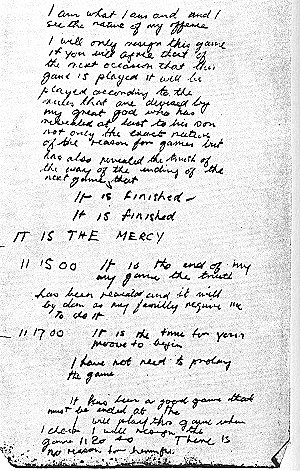 I am what I am and and I
see the nature of my offence
I will only resign this game
if you will agree that if
the next occasion that this
game is played it will be
played according to the
rules that are devised by
my great god who has
revealed at last to his son
not only the exact nature
of the reason for games but
has also revealed the truth of
the way of the ending of the
next game that
It is finished -
It is finished
IT IS THE MERCY
11 15 00 It is the end of my
my game the truth
has been revealed and it will
be done as my family require me
to do it
11 17 00 It is the time for your
move to begin
I have not need to prolong
the game
It has been a good game that
must be ended at the
I will play this game when
I choose I will resign the
game 11 20 40 There is
no reason for harmful